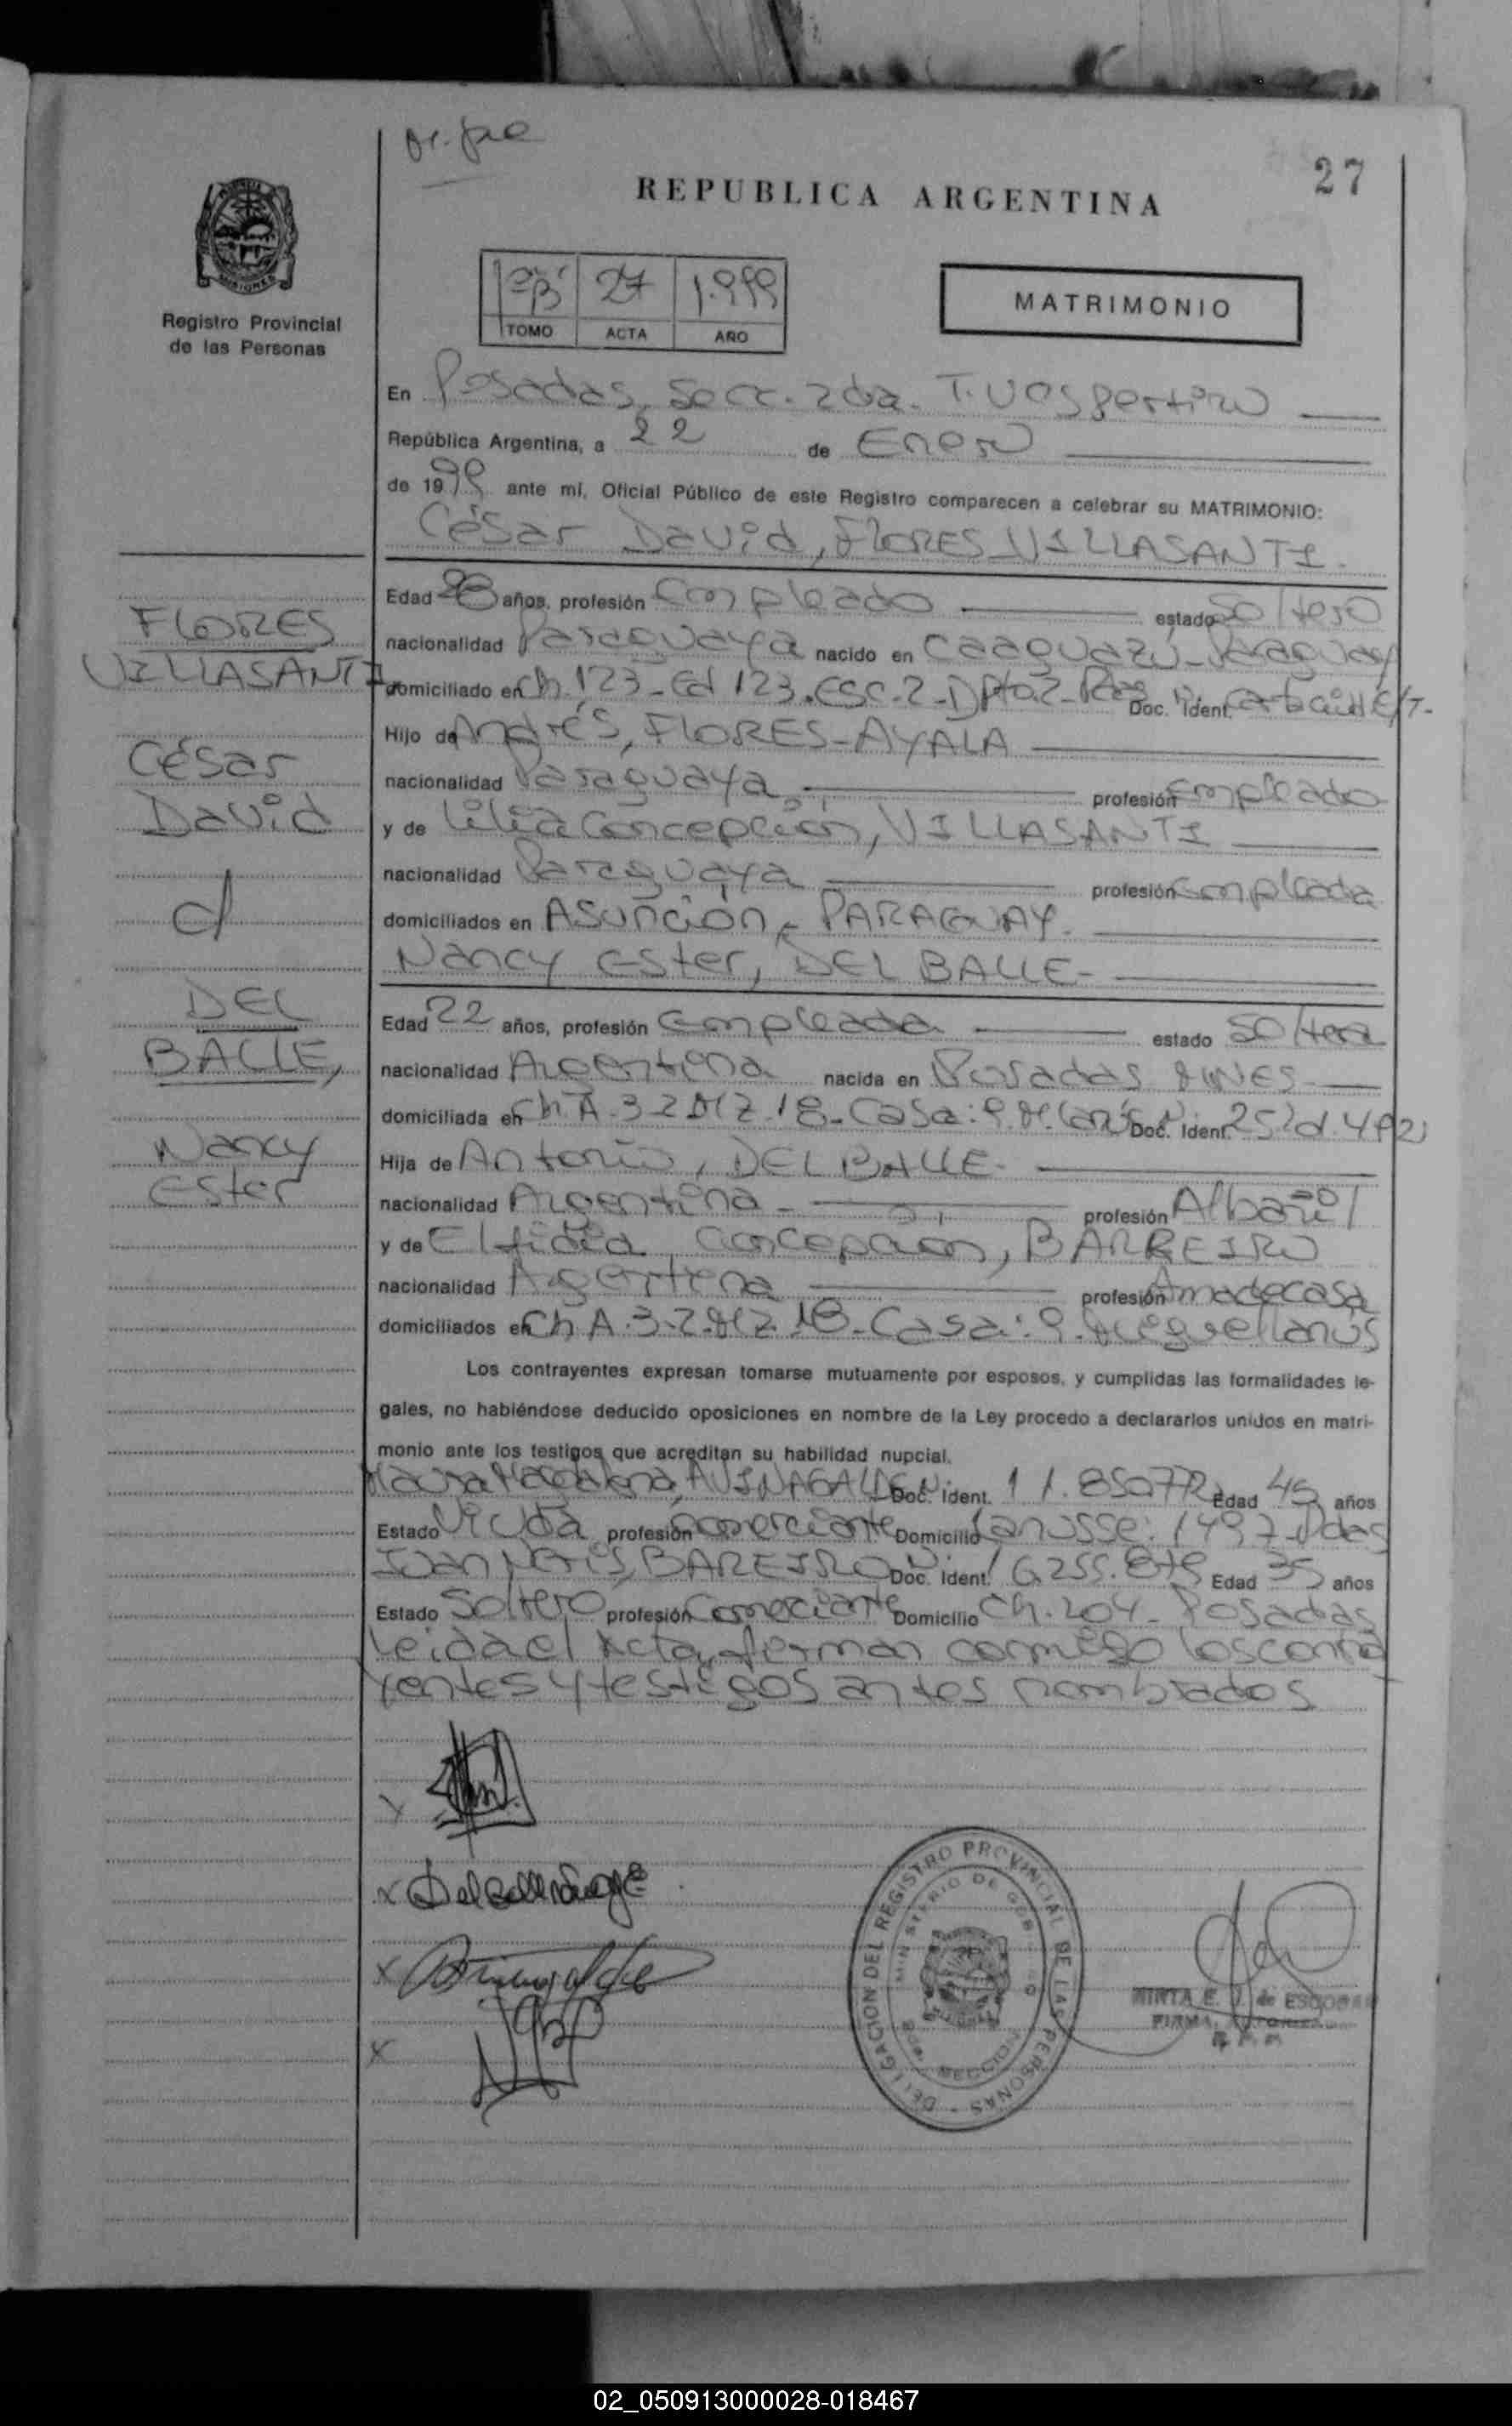 27
REPUBLICA ARGENTINA
MISIONES
Registro Provincial
de las Personas
27 1.999
TOMO ACTA AÑO
MATRIMONIO
En Posadas, Secc. 2da. T. Vespertino
República Argentina, a 22 de Enero
de 1999 ante mí, Oficial Público de este Registro comparecen a celebrar su MATRIMONIO:
César David, FLORES VILLASANTI.
FLORES
VILLASANTI
César
David
DEL
BALLE,
Nancy
Ester
Edad 28 años, profesión Empleado estado Soltero
nacionalidad Paraguaya nacido en Caaguazú - Paraguay
domiciliado en Ch. 123 - Ed 123. ESC. 2 - Dpto. 2 - Pdas Doc. Ident.
Hijo de Andrés, FLORES - AYALA
nacionalidad Paraguaya profesión Empleado
y de Lilia Concepción, VILLASANTI
nacionalidad Paraguaya profesión Empleada
domiciliados en ASUNCIÓN - PARAGUAY.
Nancy Ester, DEL BALLE -
Edad 22 años, profesión Empleada estado Soltera
nacionalidad Argentina nacida en Posadas MNES
domiciliada en Ch A. 3-2 Mz. 18 - Casa: 9. M. Lanús Doc. Ident.
Hija de Antonio, DEL BALLE -
nacionalidad Argentina - profesión Albañil
y de Elfidia Concepción, BARREIRO
nacionalidad Argentina profesión Ama de casa
domiciliados en Ch A. 3-2. Mz. 18 - Casa: 9. Miguel Lanús
Los contrayentes expresan tomarse mutuamente por esposos, y cumplidas las formalidades le-
gales, no habiéndose deducido oposiciones en nombre de la Ley procedo a declararlos unidos en matri-
monio ante los testigos que acreditan su habilidad nupcial.
Magdalena, Doc. Ident. 11.850772 Edad 45 años
Estado Viuda profesión Comerciante Domicilio Lanusse: 1497 - Pdas
BAREIRO Doc. Ident. 16.255.878 Edad 35 años
Estado Soltero profesión Comerciante Domicilio Ch. 204 - Posadas
Leida el Acta, firman conmigo los contra
yentes y testigos antes nombrados
x
x
x
x
DELEGACION DEL REGISTRO PROVINCIAL DE LAS PERSONAS -
MINISTERIO DE GOBIERNO
SECCION
MIRTA E. J. de ESCOBAR
FIRMA AUTORIZADA
R. P. P.
02_050913000028-018467